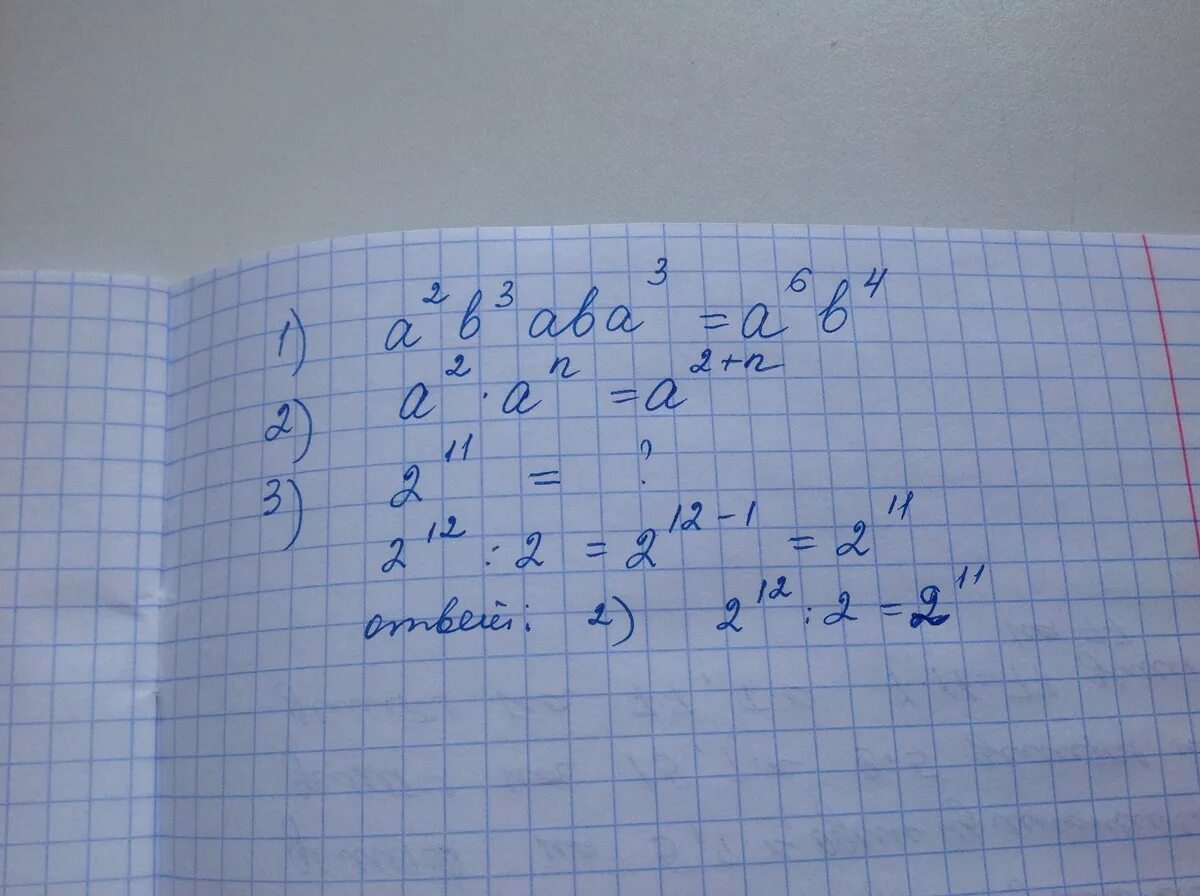 1) a² b³ a b a³ = a⁶ b⁴
2) a² · aⁿ = a²⁺ⁿ
3) 2¹¹ = ?
2¹² : 2 = 2¹²⁻¹ = 2¹¹
ответ: 2) 2¹² : 2 = 2¹¹